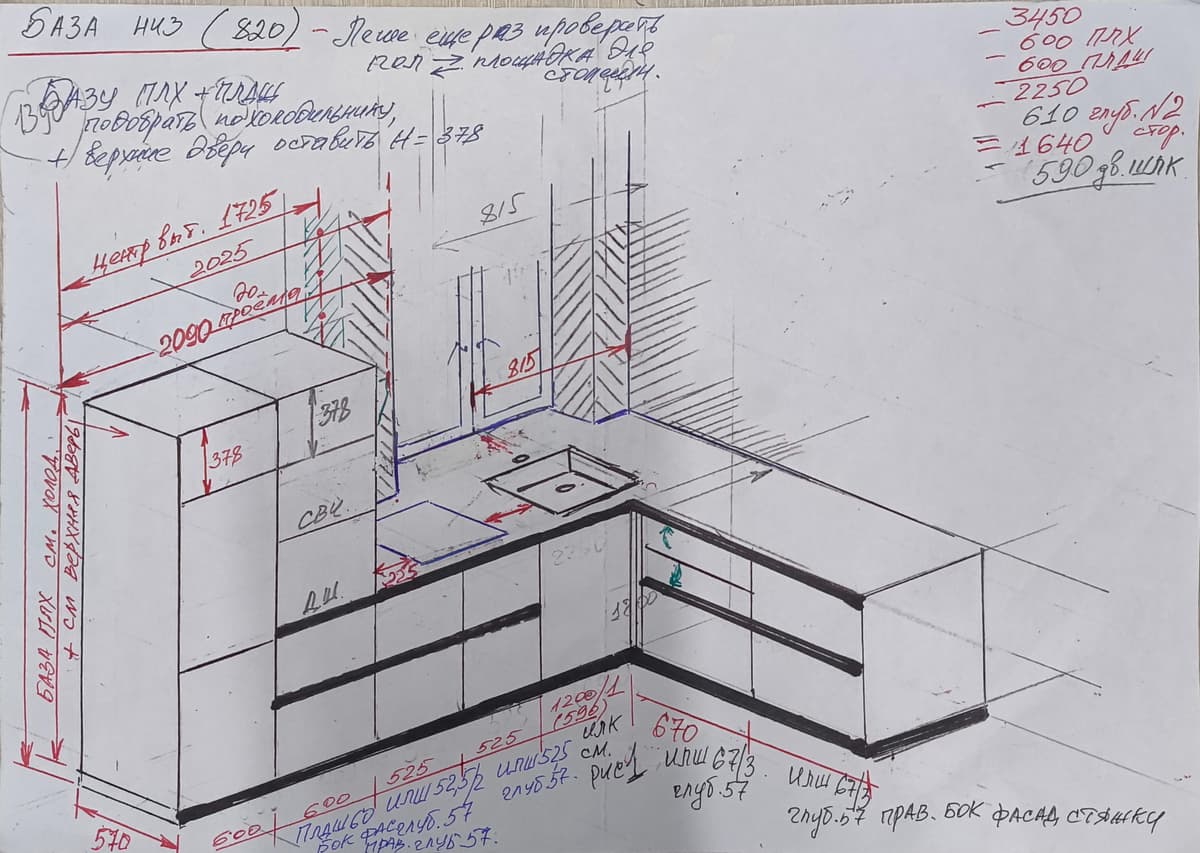 БАЗА НИЗ (820) - Леше еще раз проверить
пол ⇄ площадка для
столешн.
БАЗУ ПЛХ + ПЛДШ
1390
подобрать по холодильнику,
+ верхние двери оставить H = 378
3450
- 600 ПЛХ
- 600 ПЛДШ
2250
- 610 глуб. №2
стор.
= 1640
- 590 дв. ШЛК
Центр выт. 1725
2025
2090 до проёма
815
815
378
378
СВЧ
ДШ
225
1200
БАЗА ПЛХ см. ХОЛОД.
+ СМ ВЕРХНЯЯ ДВЕРЬ
570
600
600
525
525
1200/1
(596)
670
ПЛДШ 60
БОК ФАС глуб. 57
ПРАВ. глуб. 57.
ИЛШ 52,5/2
ИЛШ 525
глуб. 57.
ИЛК
см.
РИС 1
ИЛШ 67/3
глуб. 57
ИЛШ 67/3
глуб. 57 ПРАВ. БОК ФАСАД СТЯЖКИ